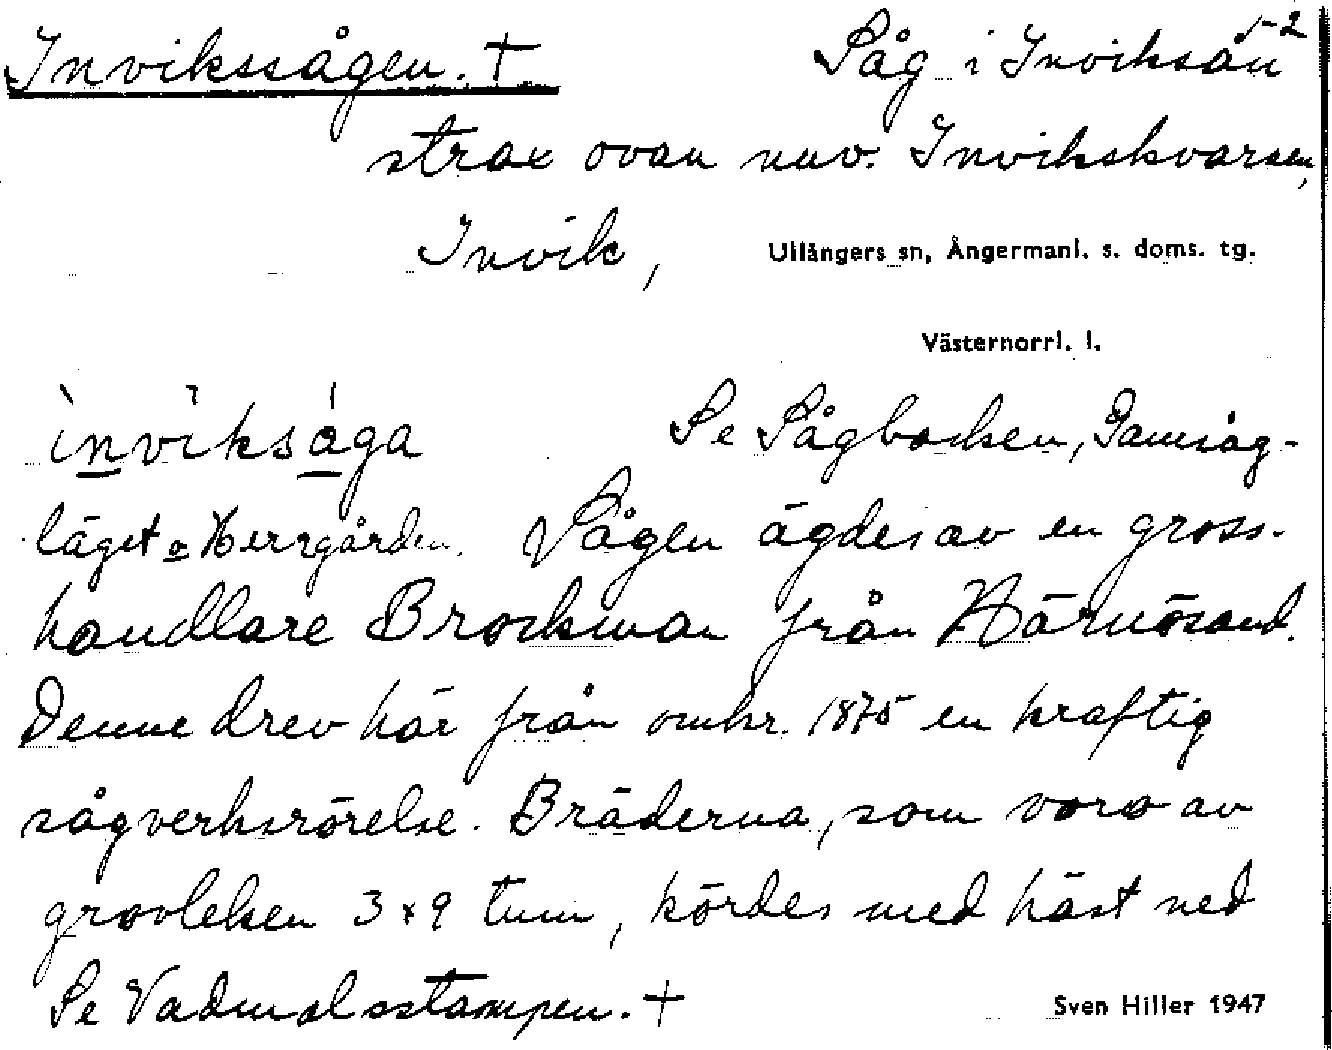 Invikssågen. † Såg i Inviksån 1-2
strax ovan nuv. Invikskvarnen,
Invik, Ullångers sn, Ångermanl. s. doms. tg.
Västernorrl. l.
ìnviksága Se Sågbacken, Ramsåg-
läget o Herrgården. Sågen ägdes av en gross-
handlare Brockman från Härnösand.
Denne drev här från omkr. 1875 en kraftig
sågverksrörelse. Bräderna, som voro av
grovleken 3 x 9 tum, kördes med häst ned
Se Vadmalsstampen. † Sven Hiller 1947